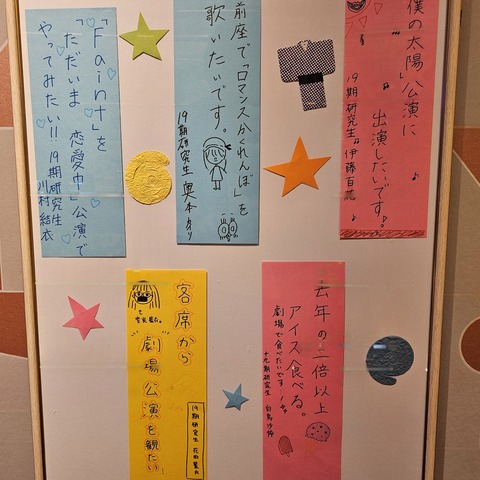 僕の太陽」公演に
出演したいです。
19期研究生 伊藤百花
前座で「ロマンスかくれんぼ」を
歌いたいです。
19期研究生 奥本カイリ
「Faint」を
「ただいま 恋愛中」公演で
やってみたい!!
19期研究生
川村結衣
去年の二倍以上
アイス食べる。
劇場で食べたいです!
十九期研究生 白鳥沙怜
客席から
劇場公演を観たい
19期研究生 花田藍衣